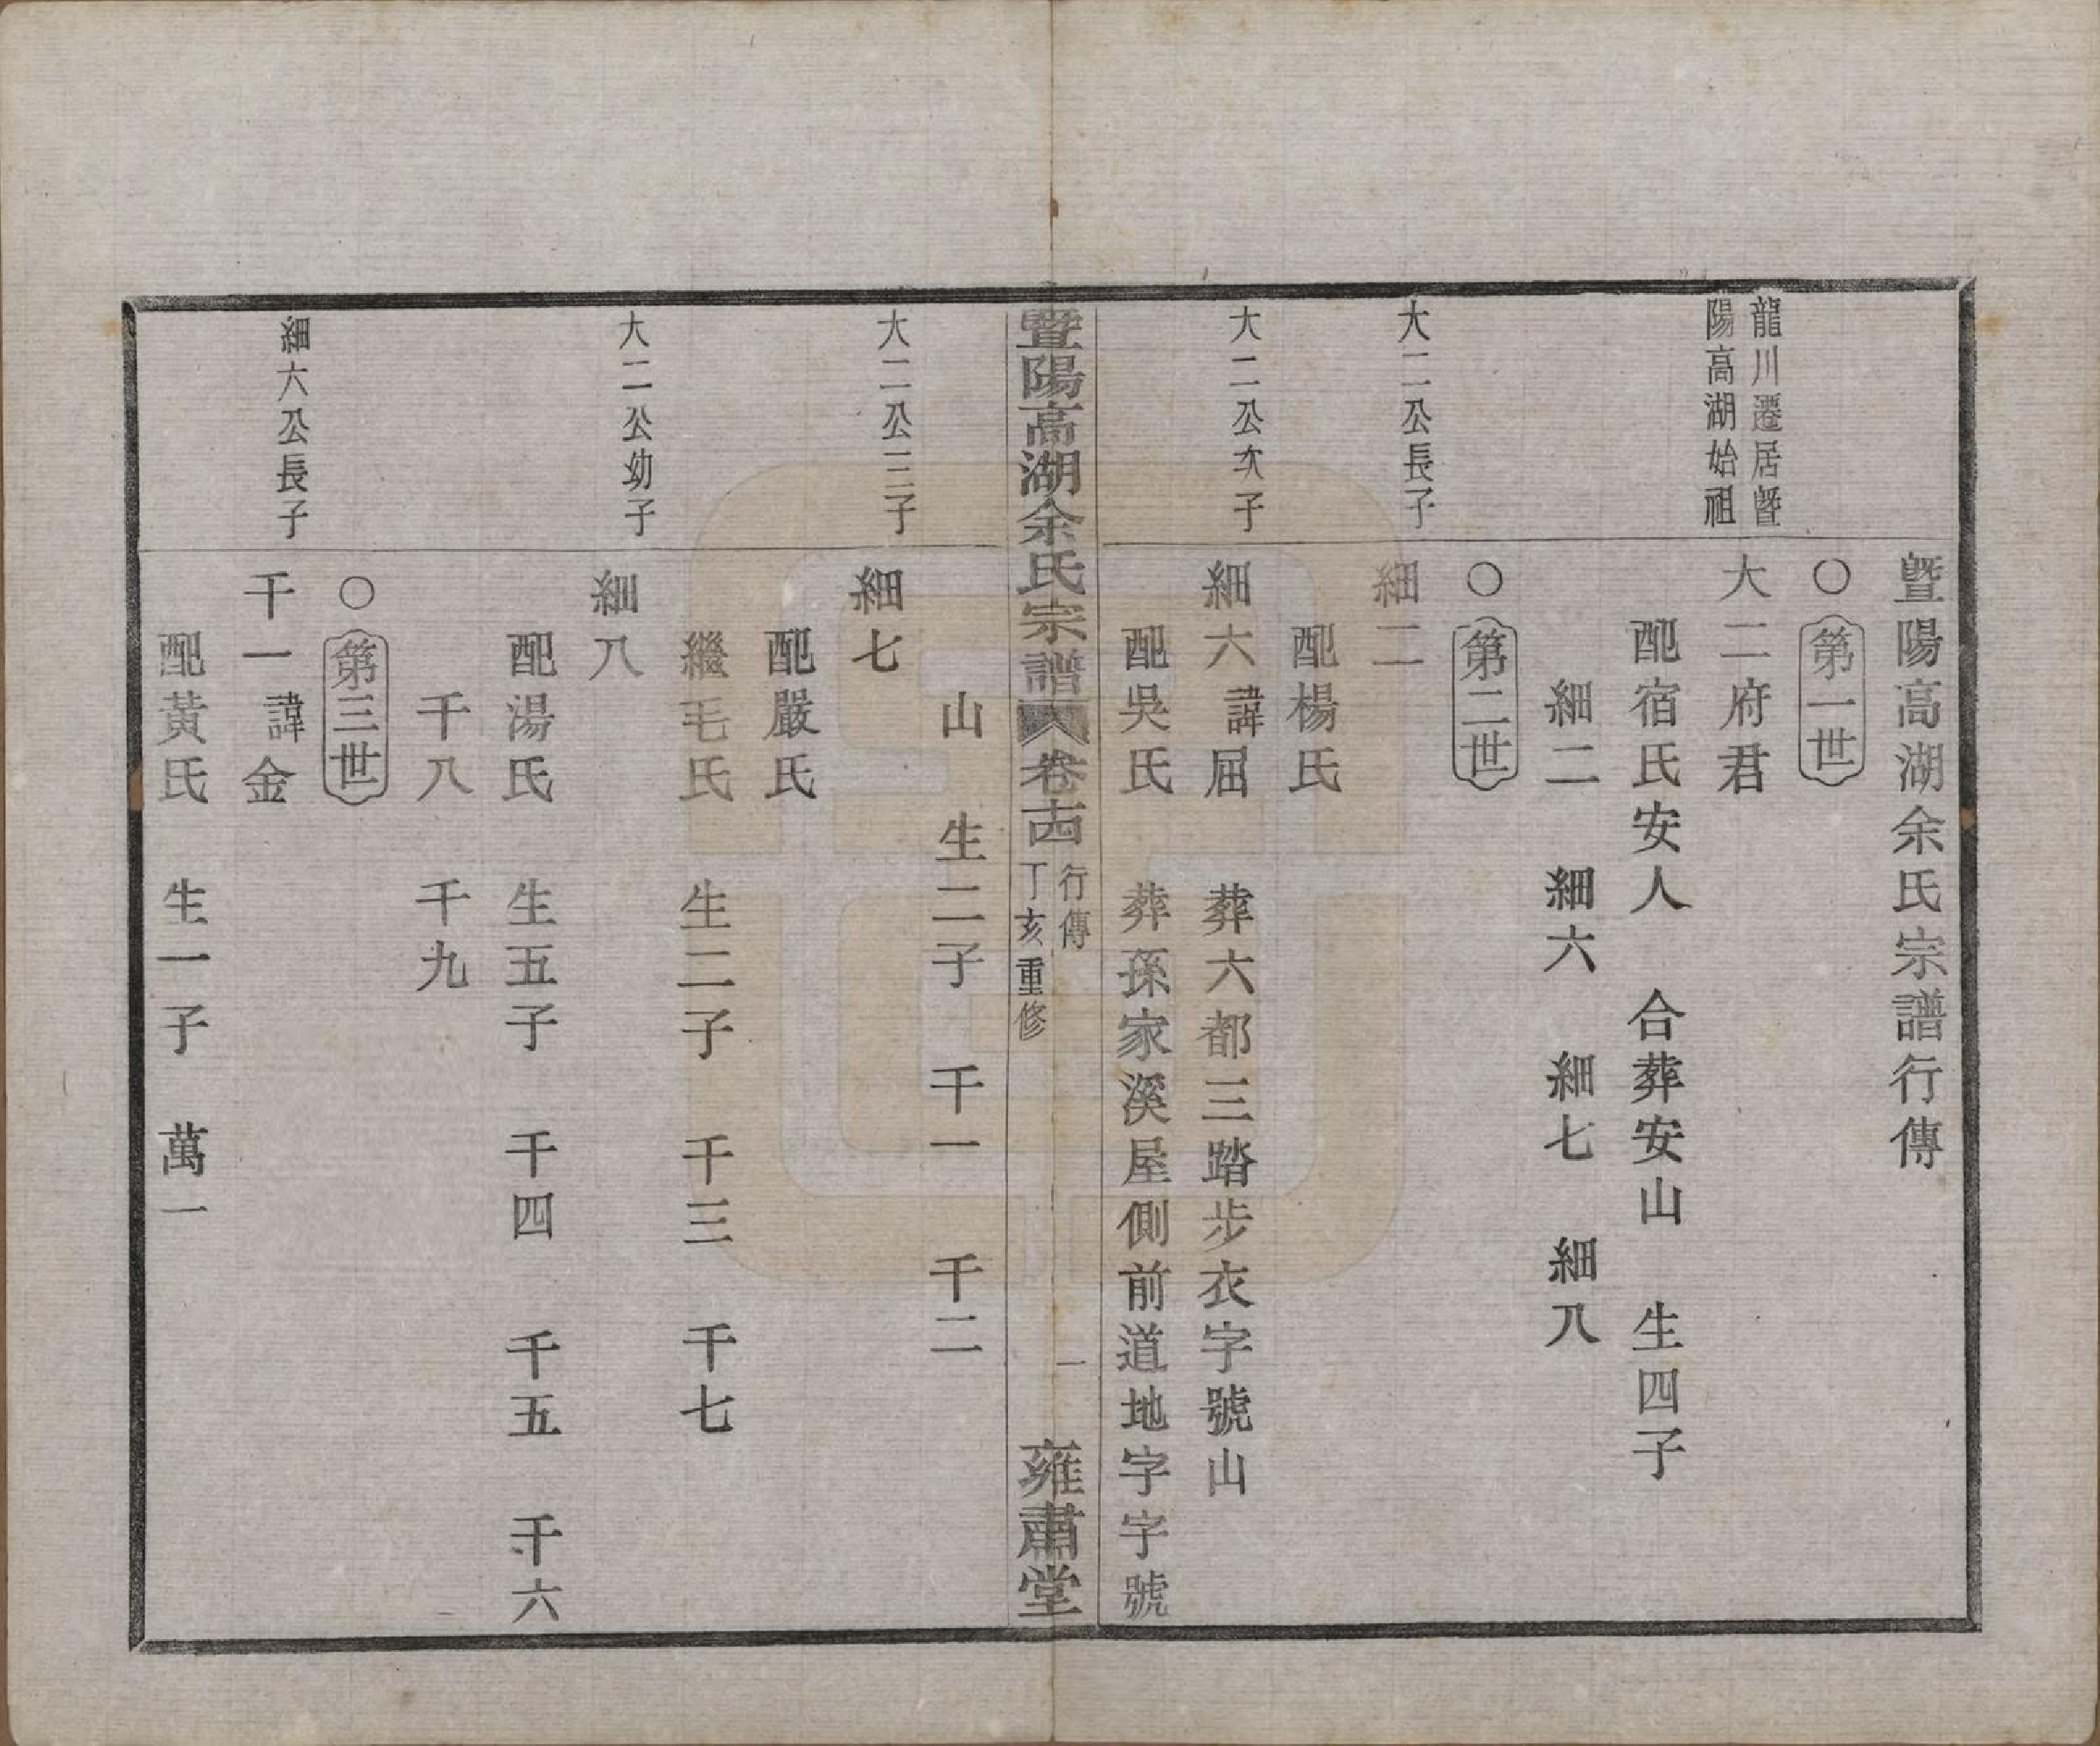 暨陽高湖余氏宗譜行傳
○第一世
龍川遷居暨
陽高湖始祖
大二府君
配宿氏安人 合葬安山 生四子
細二 細六 細七 細八
○第二世
大二公長子
細二
配楊氏
大二公次子
細六 諱屈 葬六都三踏步衣字號山
配吳氏 葬孫家溪屋側前道地字字號
暨陽高湖余氏宗譜 卷十四 行傳 丁亥重修 一 雍肅堂
山 生二子 千一 千二
大二公三子
細七
配嚴氏
繼毛氏 生二子 千三 千七
大二公幼子
細八
配湯氏 生五子 千四 千五 千六
千八 千九
○第三世
細六公長子
千一 諱金
配黃氏 生一子 萬一